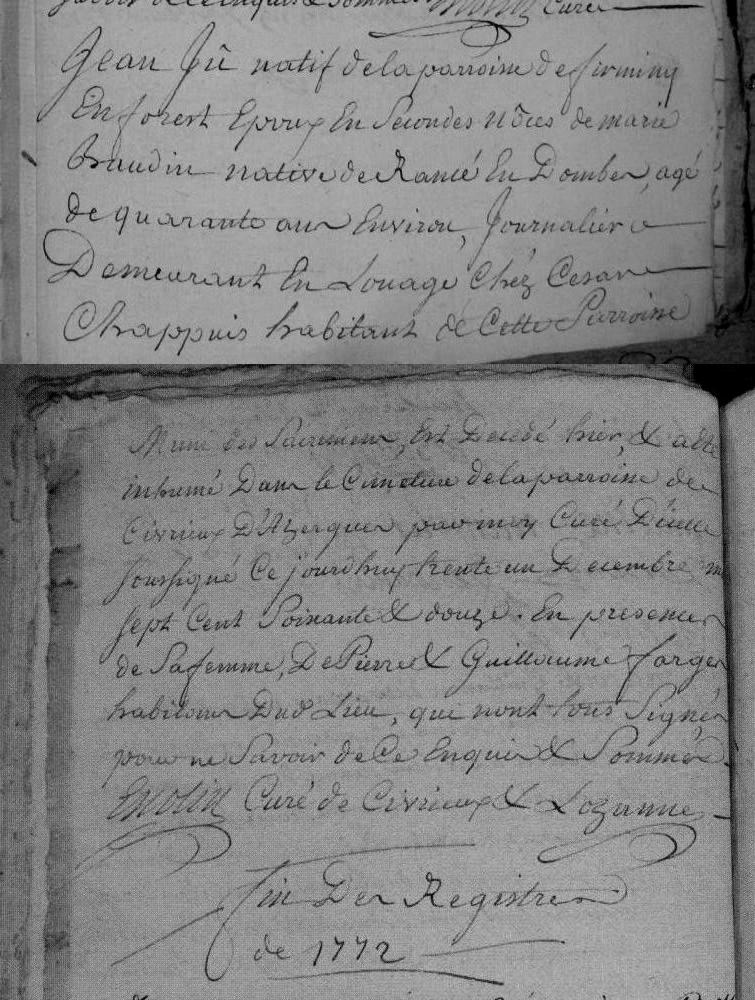 savoir de ce enquis & sommés Emolin Curé
Jean Fû natif de la parroisse de firminy
En forest Epoux En Secondes nôces de marie
Braudin native de Rancé En Dombes, agé
de quarante ans Environ, Journalier
Demeurant En Louage Chéz Cesar
Chappuis habitant de Cette Parroisse
Muni des Sacremens, Est Decedé hier, & a été
inhumé Dans le Cimetiere de la parroisse de
Civrieux D'Azergues par moy Curé D'icelle
soussigné Ce jourdhuy trente un Decembre m
sept Cent Soixante & douze. En presence
de Sa femme, De Pierre & Guillaume farges
habitans Dud Lieu, que n'ont tous Signés
pour ne Savoir de Ce Enquis & Sommés
Emolin Curé de Civrieux & Lozanne
fin Des Registres
de 1772